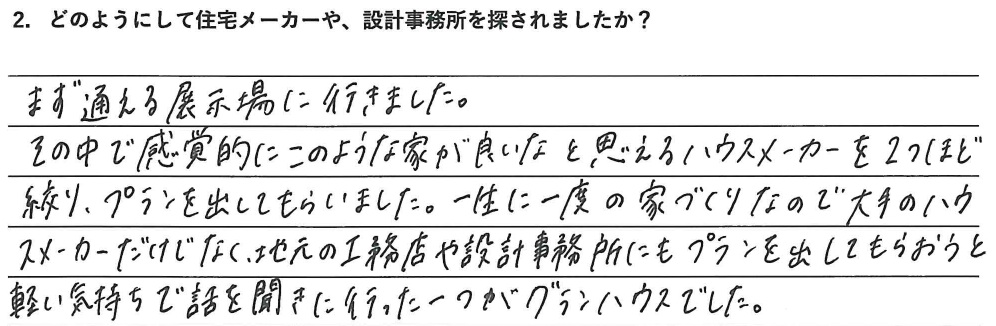 2. どのようにして住宅メーカーや、設計事務所を探されましたか？
まず通える展示場に行きました。
その中で感覚的にこのような家が良いなと思えるハウスメーカーを2つほど
絞り、プランを出してもらいました。一生に一度の家づくりなので大手のハウ
スメーカーだけじなく、地元の工務店や設計事務所にもプランを出してもらおうと
軽い気持ちで話を聞きに行った一つがグランハウスでした。